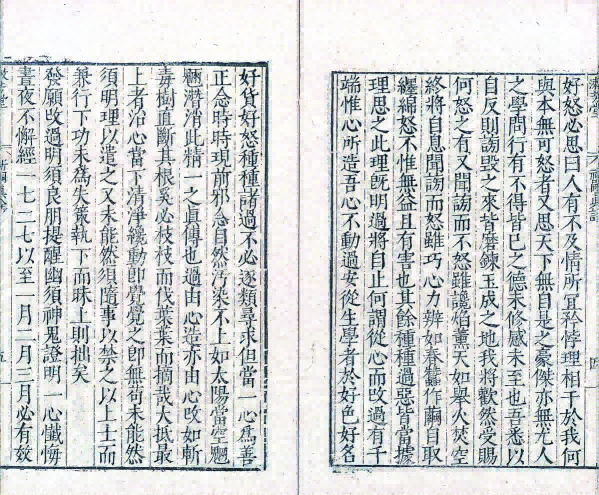 好怒必思曰人有不及情所宜矜悖理相干於我何
與本無可怒者又思天下無自是之豪傑亦無尤人
之學問行有不得皆已之德未修感未至也吾悉以
自反則謗毀之來皆磨鍊玉成之地我將歡然受賜
何怒之有又聞謗而不怒雖讒焰薰天如舉火焚空
終將自息聞謗而怒雖巧心力辨如春蠶作繭自取
纏綿怒不惟無益且有害也其餘種種過惡皆當據
理思之此理旣明過將自止何謂從心而改過有千
端惟心所造吾心不動過安從生學者於好色好名
好貨好怒種種諸過不必逐類尋求但當一心爲善
正念時時現前邪念自然汚染不上如太陽當空魍
魎潛消此精一之眞傳也過由心造亦由心改如斬
毒樹直斷其根奚必枝枝而伐葉葉而摘哉大抵最
上者治心當下清淨纔動卽覺覺之卽無苟未能然
須明理以遣之又未能然須隨事以禁之以上士而
兼行下功未爲失策執下而昧上則拙矣
發願改過明須良朋提醒幽須神鬼證明一心懺悔
晝夜不懈經一七二七以至一月二月三月必有效